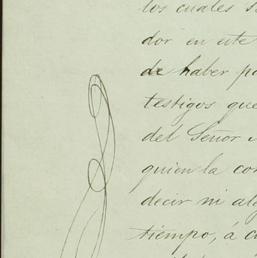 los cuales s
dor en este
de haber po
testigos que
del Señor
quien la con
decir ni alg
tiempo, á c